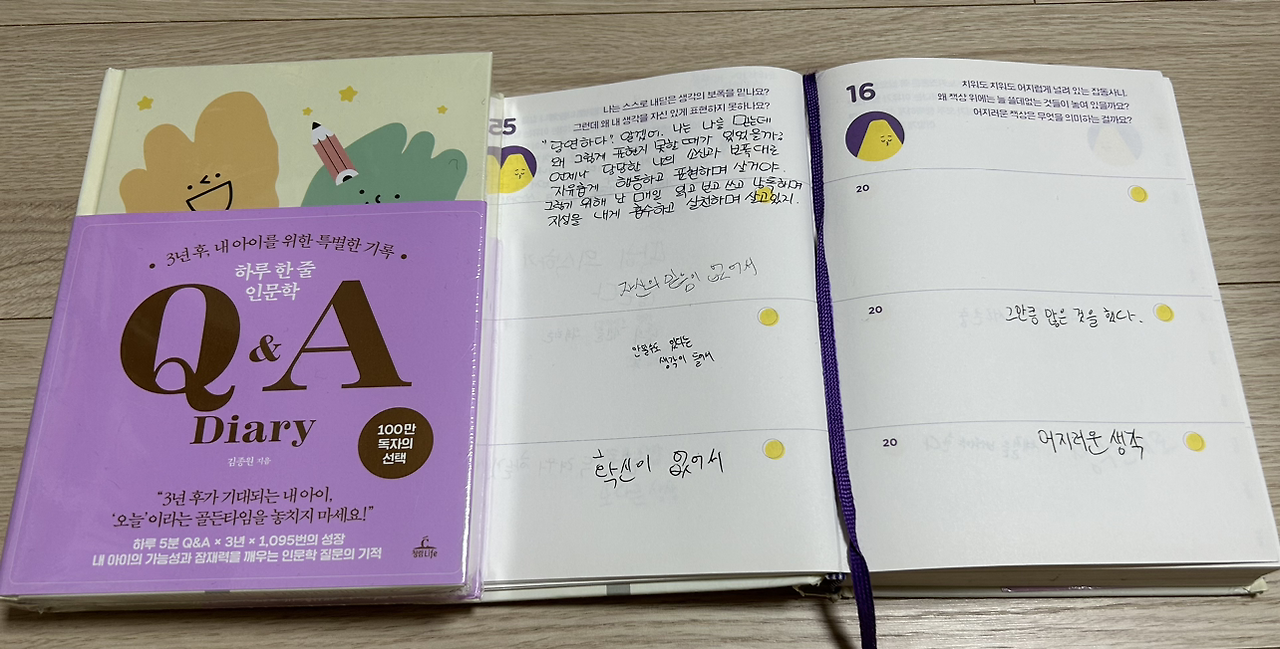 3년 후, 내 아이를 위한 특별한 기록
하루 한 줄
인문학
Q&A
Diary
김종원 지음
100만
독자의
선택
“3년 후가 기대되는 내 아이,
‘오늘’이라는 골든타임을 놓치지 마세요!”
하루 5분 Q&A × 3년 × 1,095번의 성장
내 아이의 가능성과 잠재력을 깨우는 인문학 질문의 기적
청림Life
25
나는 스스로 내딛은 생각의 보폭을 믿나요?
그런데 왜 내 생각을 자신 있게 표현하지 못하나요?
"당연하다". 당연히. 나는 나를 믿는데
왜 그렇게 표현치 못할 때가 있었을까?
언제나 당당한 나의 소신과 보폭대로
자유롭게 행동하고 표현하며 살거야.
그렇기 위해 난 매일 읽고 보고 쓰고 낭독하며
지성을 내게 흡수하고 실천하며 살고있지.
자신의 믿음이 없어서
안될수도 있다는
생각이 들어서
확신이 없어서
16
치워도 치워도 어지럽게 널려 있는 잡동사니.
왜 책상 위에는 늘 쓸데없는 것들이 놓여 있을까요?
어지러운 책상은 무엇을 의미하는 걸까요?
20
20
그만큼 많은 것을 했다.
20
어지러운 생각